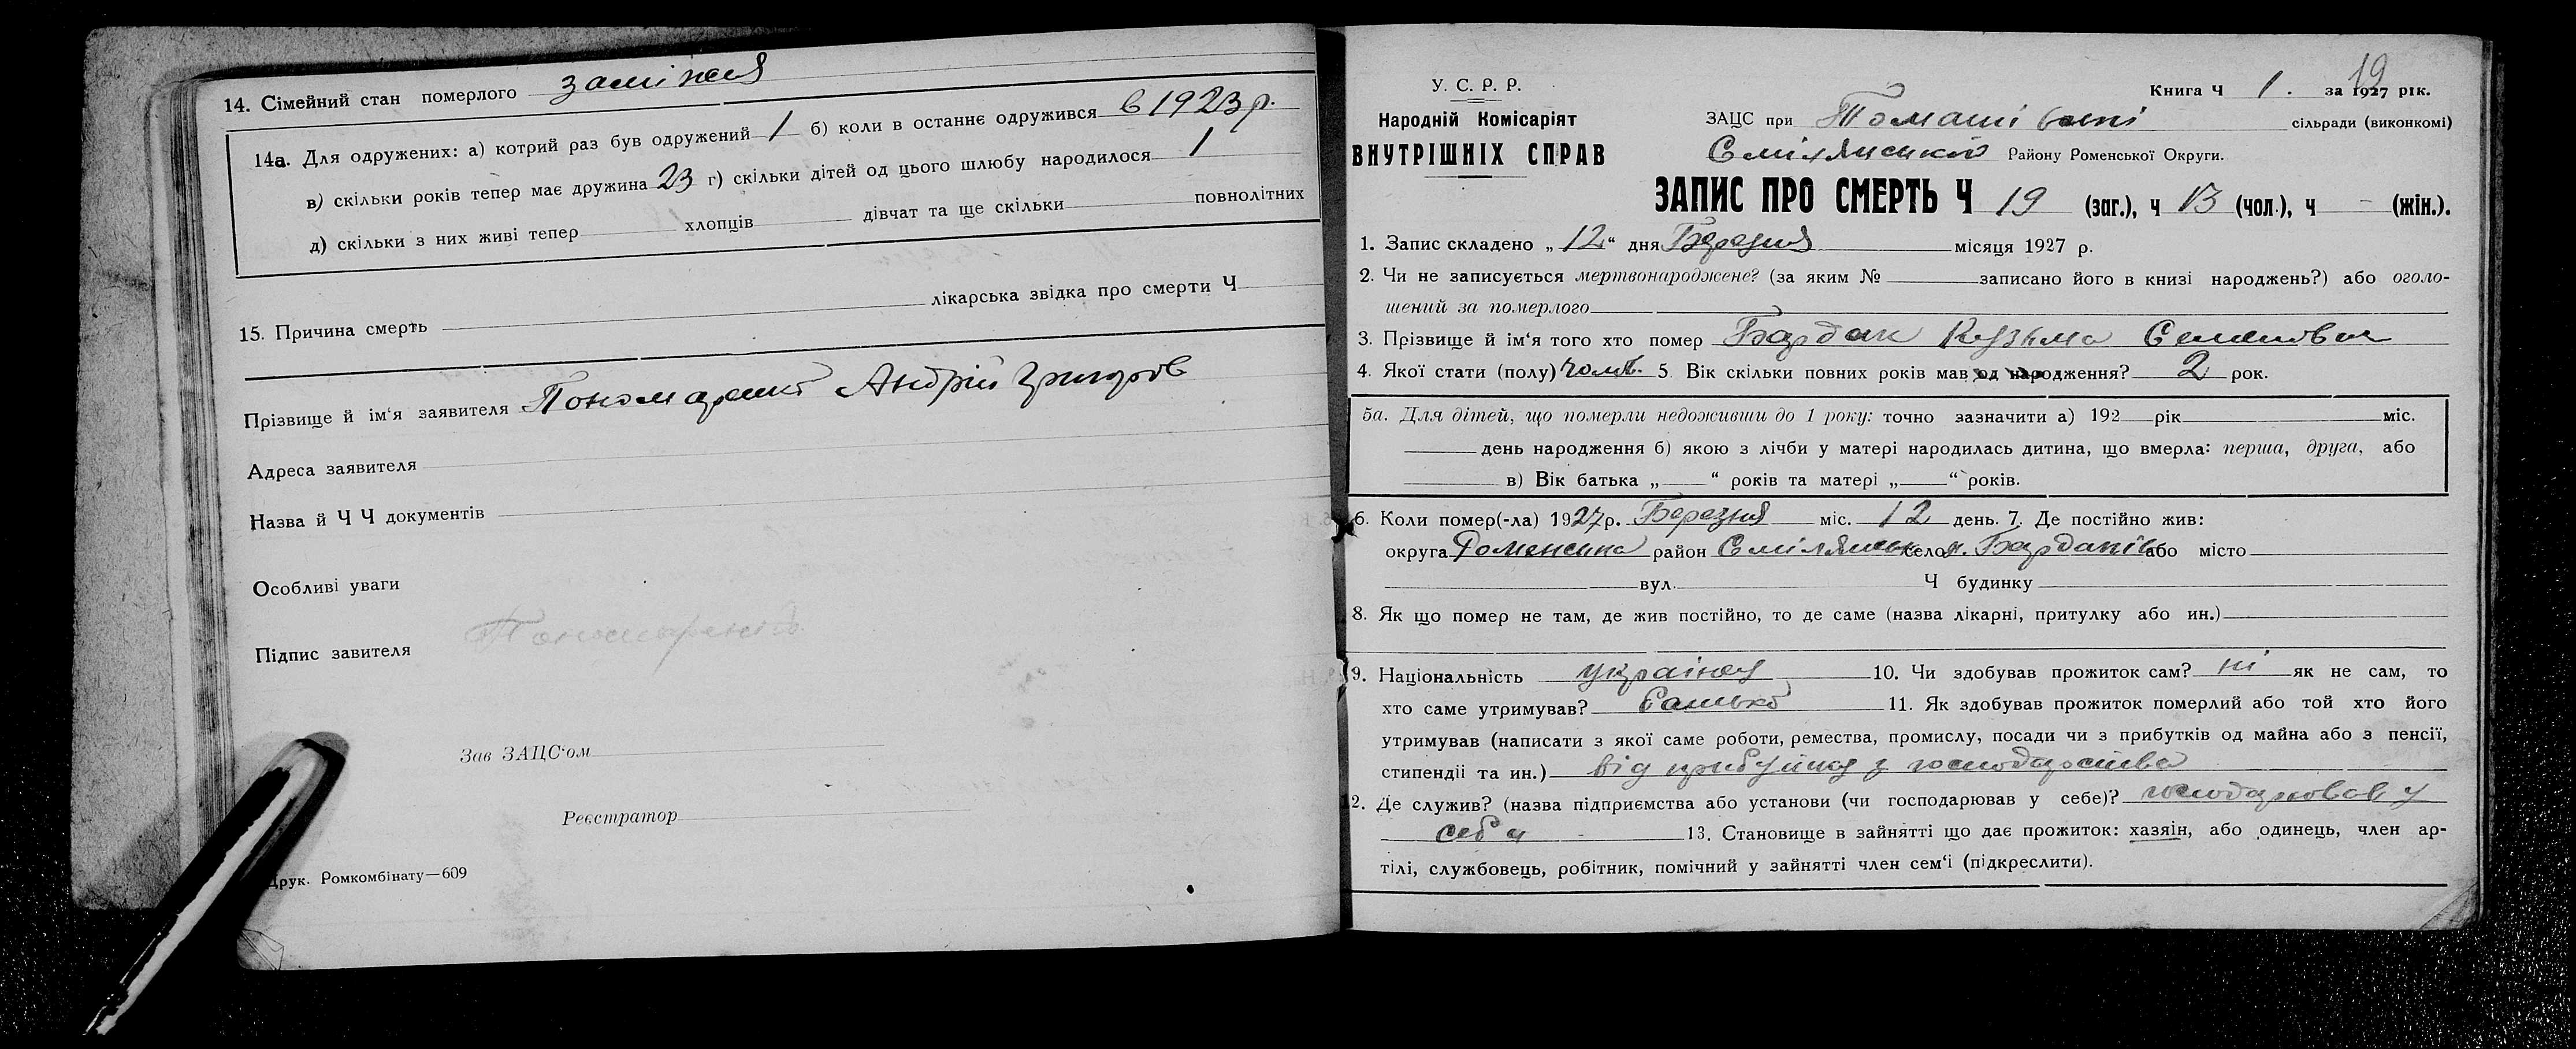 14. Сімейний стан померлого заміжня
14а. Для одружених: а) котрий раз був одружений 1 б) коли в останнє одружився в 1923 р.
в) скільки років тепер має дружина 23 г) скільки дітей од цього шлюбу народилося 1
д) скільки з них живі тепер хлопців дівчат та ще скільки повнолітних
лікарська звідка про смерти Ч
15. Причина смерть
Прізвище й ім'я заявителя Пономаренко Андрій Григоров
Адреса заявителя
Назва й Ч Ч документів
Особливі уваги
Підпис завителя Пономаренко
Зав ЗАЦС'ом
Реєстратор
Друк. Ромкомбінату—609
19
У. С. Р. Р.
Книга Ч 1. за 1927 рік.
Народній Комісаріят
ЗАЦС при сільради (виконкомі)
ВНУТРІШНІХ СПРАВ
Смілянського Району Роменської Округи.
ЗАПИС ПРО СМЕРТЬ Ч 19 (заг.), ч 13 (чол.), ч - (жін.).
1. Запис складено „12" дня Березня місяця 1927 р.
2. Чи не записується мертвонароджене? (за яким № записано його в книзі народжень?) або оголо-
шений за померлого
3. Прізвище й ім'я того хто помер Бардак Кузьма Семенович
4. Якої стати (полу) чолов. 5. Вік скільки повних років мав од народження? 2 рок.
5а. Для дітей, що померли недоживши до 1 року: точно зазначити а) 192 рік міс.
день народження б) якою з лічби у матері народилась дитина, що вмерла: перша, друга, або
в) Вік батька „ " років та матері „ " років.
6. Коли помер(-ла) 1927 р. Березня міс. 12 день. 7. Де постійно жив:
округа Роменська район Смілянськ село х. Бардаків або місто
вул. Ч будинку
8. Як що помер не там, де жив постійно, то де саме (назва лікарні, притулку або ин.)
9. Національність 10. Чи здобував прожиток сам? ні як не сам, то
хто саме утримував? Батько 11. Як здобував прожиток померлий або той хто його
утримував (написати з якої саме роботи, ремества, промислу, посади чи з прибутків од майна або з пенсії,
стипендіі та ин.) від прибутку з господарства
12. Де служив? (назва підприємства або установи (чи господарював у себе)? господарював у
себе 13. Становище в зайнятті що дає прожиток: хазяін, або одинець, член ар-
тілі, службовець, робітник, помічний у зайнятті член сем'і (підкреслити).